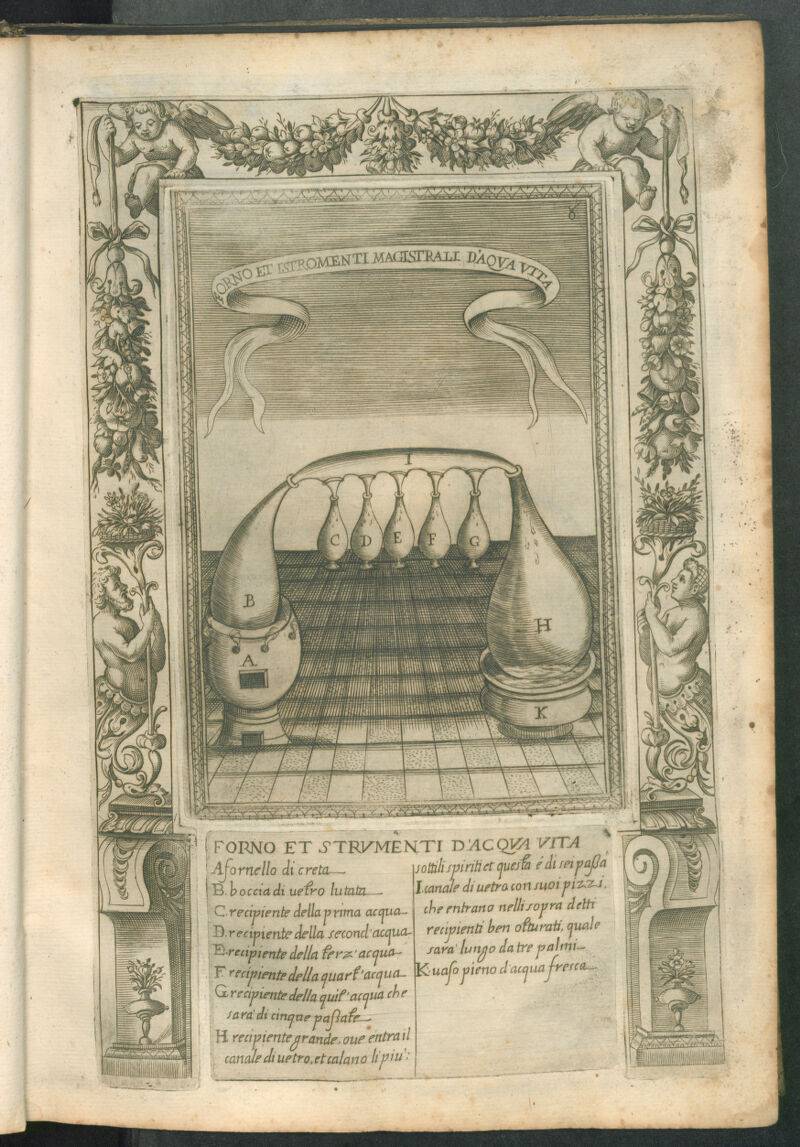 8
FORNO ET ISTROMENTI MAGISTRALI D'AQVA VITA
I
C D E F G
B
H
A
K
FORNO ET STRVMENTI D'ACQVA VITA
A fornello di creta
B. boccia di vetro lutata
C. recipiente della prima acqua
D. recipiente della second' acqua
E. recipiente della terz' acqua
F recipiente della quart' acqua
G recipiente della quit' acqua che
sarà di cinque passate
H recipiente grande, oue entra il
canale di uetro, et calano li piu:
sottili spiriti et questa é di sei passa
I. canale di uetro con suoi pizzi,
che entrano nelli sopra detti
recipienti ben otturati, quale
sarà lungo da tre palmi
K. uaso pieno d'acqua fresca